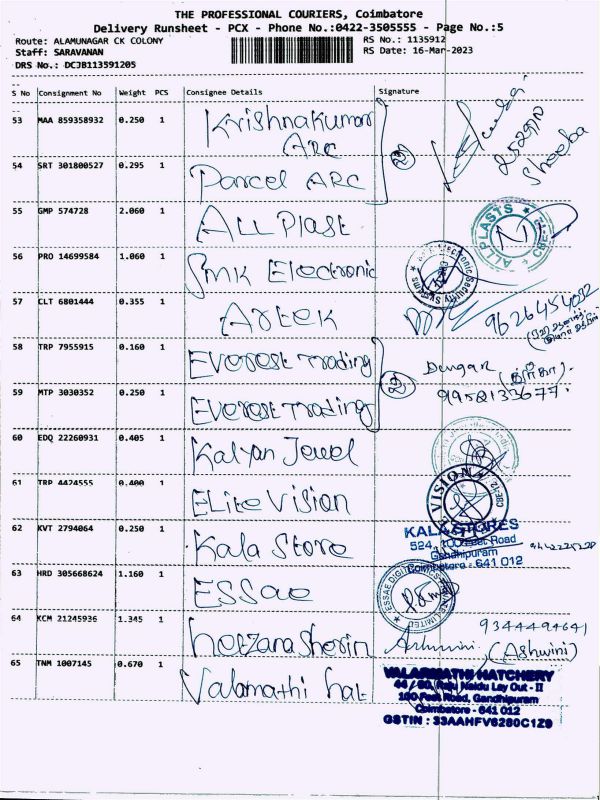 THE PROFESSIONAL COURIERS, Coimbatore
Delivery Runsheet - PCX - Phone No.:0422-3505555 - Page No.:5
Route: ALAMUNAGAR CK COLONY RS No.: 1135912
Staff: SARAVANAN RS Date: 16-Mar-2023
DRS No.: DCJB113591205
S No Consignment No Weight PCS Consignee Details Signature
53 MAA 859358932 0.250 1 Krishnakumar ARC
54 SRT 301800527 0.295 1 Parcel ARC
Sheeba
55 GMP 574728 2.060 1 ALL Plast
ALL PLASTS
56 PRO 14699584 1.060 1 SMK Electronic
Electronic Security Systems
57 CLT 6801444 0.355 1 Artek
9626454092
58 TRP 7955915 0.160 1 Everest Trading
59 MTP 3030352 0.250 1 Everest Trading
9952133677
60 EDQ 22260931 0.405 1 Kalyan Jewel
61 TRP 4424555 0.400 1 Elite Vision
VISION
62 KVT 2794064 0.250 1 Kala Store
KALA STORES
524, 100 Feet Road
Gandhipuram
Coimbatore - 641 012
63 HRD 305668624 1.160 1 ESSae
ESSAE DIGITRONICS LIMITED
64 KCM 21245936 1.345 1
Ashwini (Ashwini)
9344494641
65 TNM 1007145 0.670 1 Valarmathi hat
VALARMATHI HATCHERY
Naidu Lay Out - II
100 Feet Road, Gandhipuram
Coimbatore - 641 012
GSTIN : 33AAHFV6280C1Z9